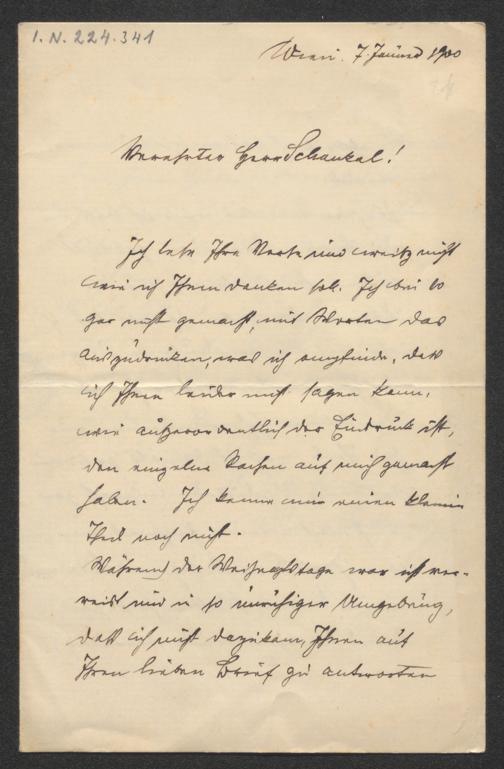 I. N. 224.341
Wien. 7. Januar 1900
Verehrter Herr Schaukal!
Ich lese Ihre Verse und weiß nicht
wie ich Ihnen danken soll. Ich bin so
gar nicht gemacht, mit Worten das
auszudrücken, was ich empfinde, daß
ich Ihnen leider nicht sagen kann,
wie außerordentlich der Eindruck ist,
den einzelne Sachen auf mich gemacht
haben. Ich kenne einen kleinen
Theil noch nicht.
Während der Weihnachtstage war ich ver-
reist und in so unruhiger Umgebung,
daß ich nicht dazukam, Ihnen auf
Ihren lieben Brief zu antworten